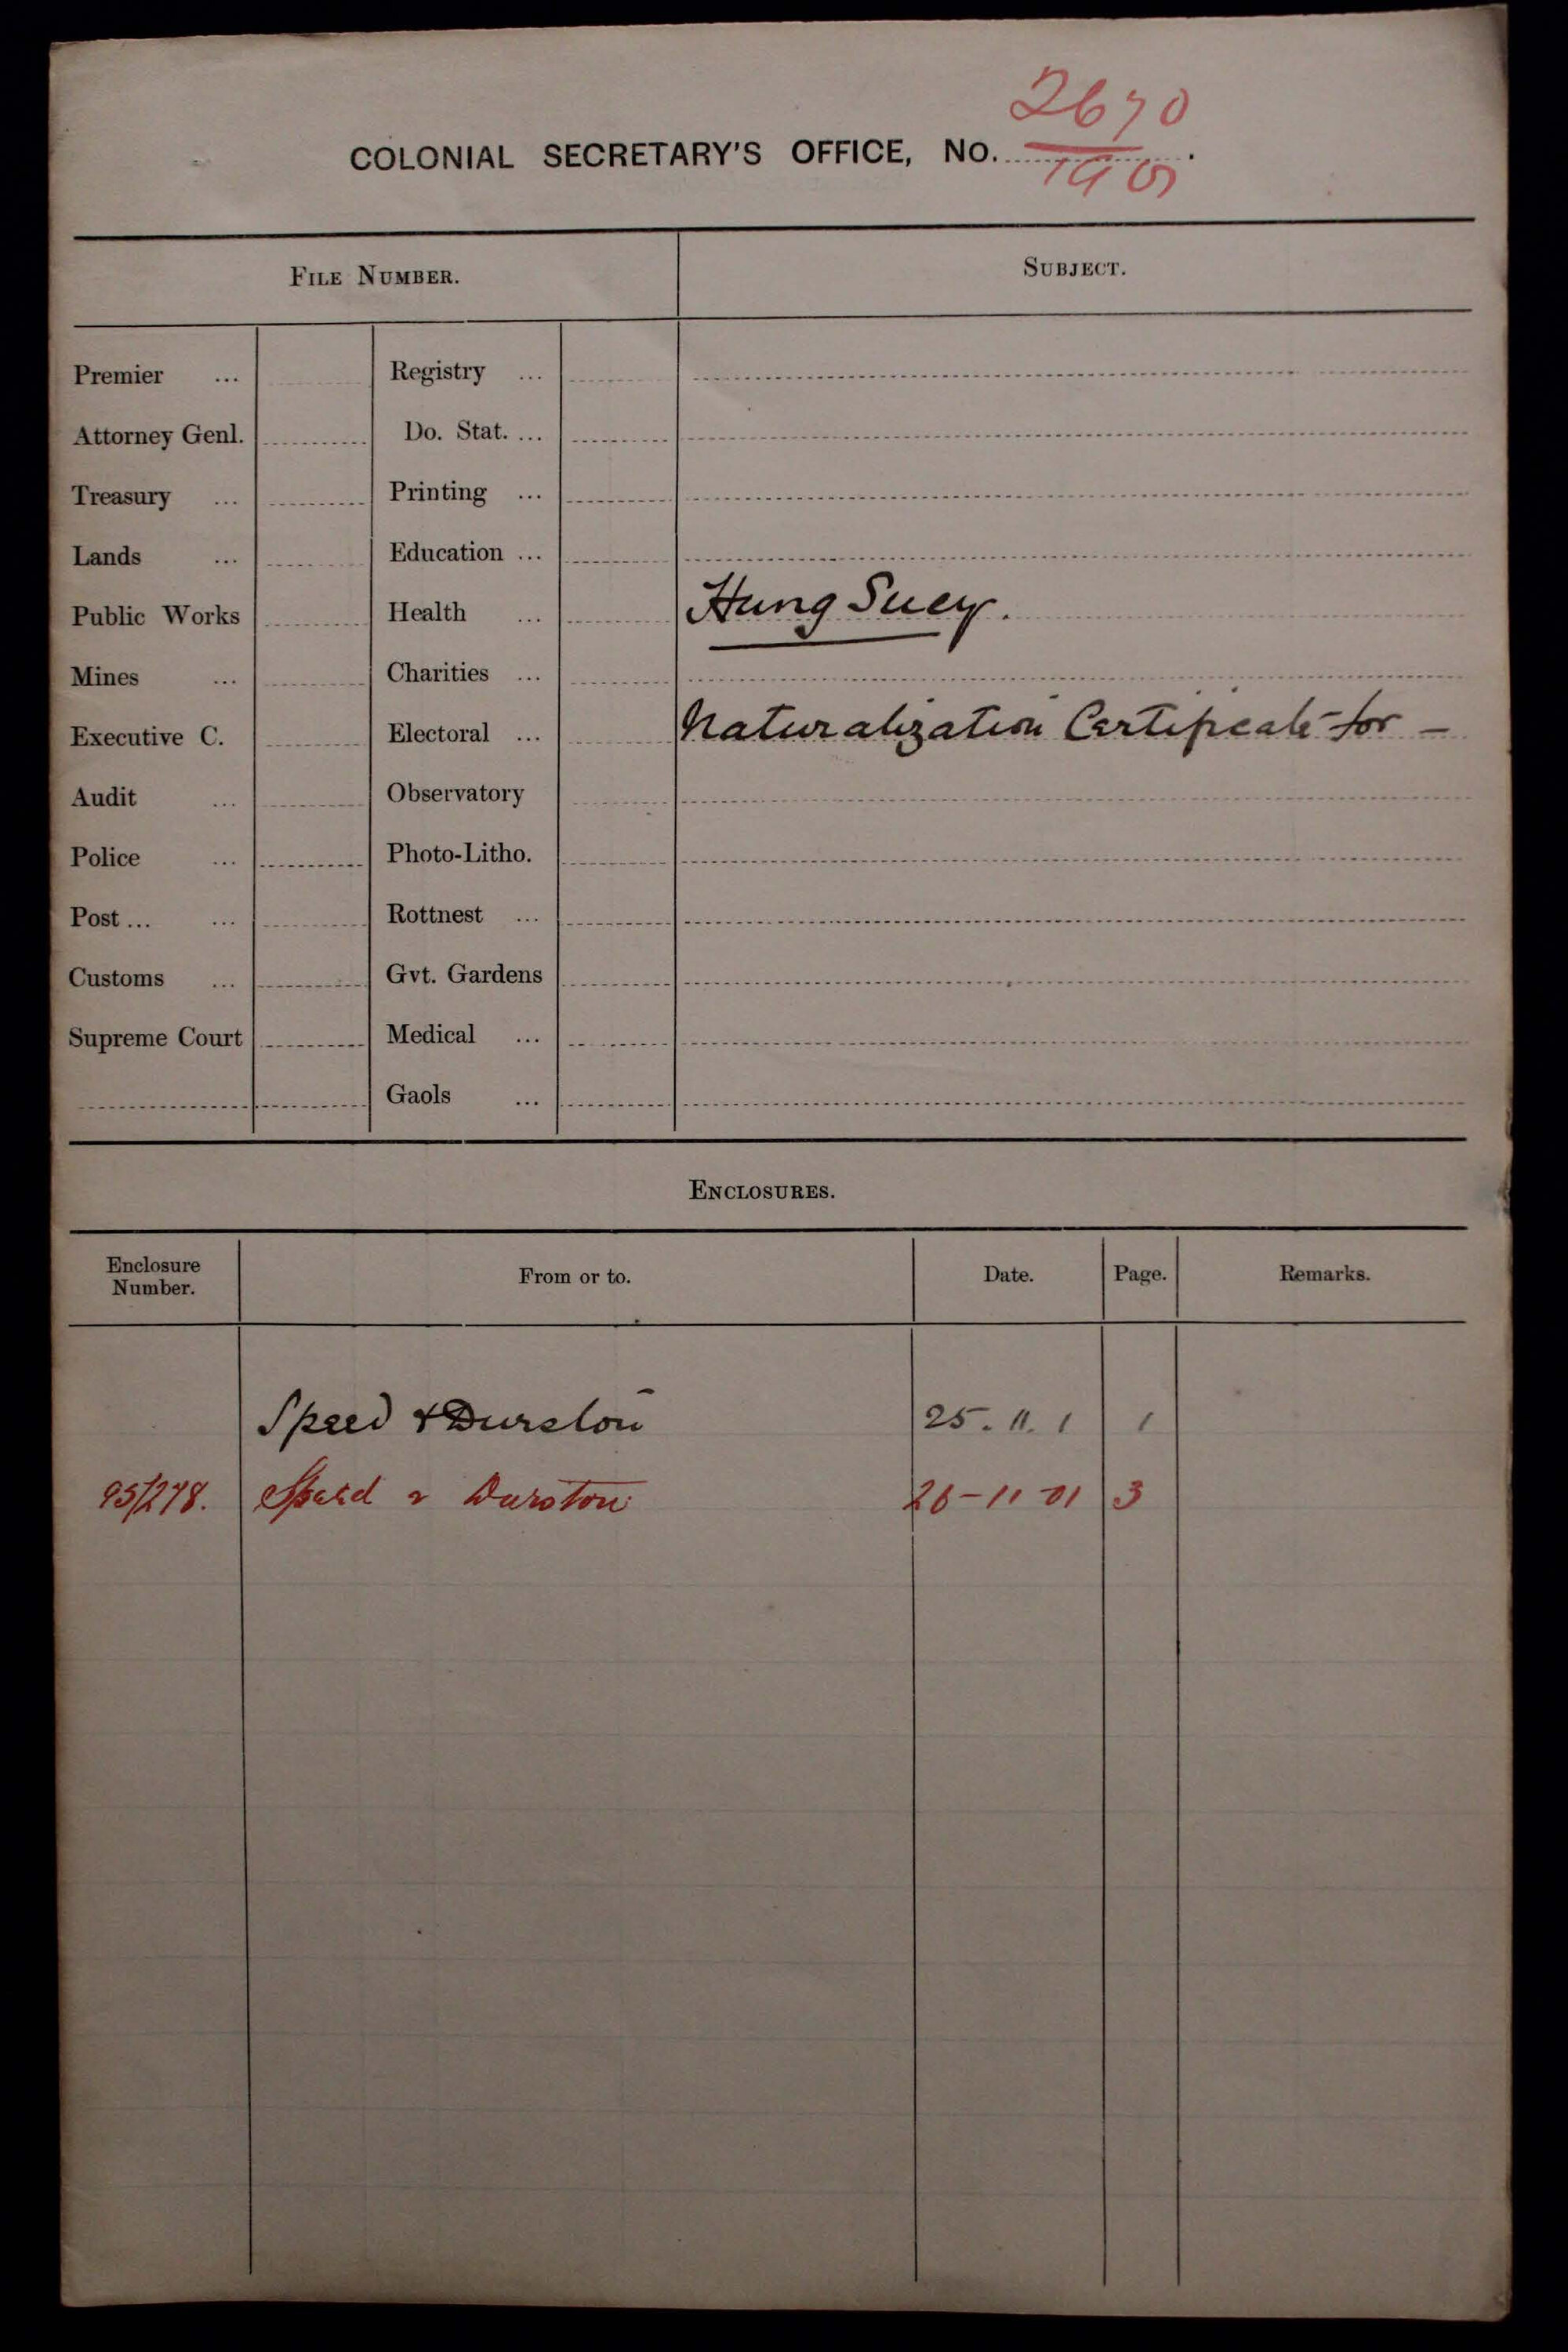 2670
COLONIAL SECRETARY'S OFFICE, NO. 1901.
FILE NUMBER. SUBJECT.
Premier ... Registry ...
Attorney Genl. Do. Stat. ...
Treasury ... Printing ...
Lands ... Education ...
Public Works Health ... Hung Suey.
Mines ... Charities ...
Executive C. Electoral ... Naturalization Certificate for –
Audit ... Observatory
Police ... Photo-Litho.
Post ... ... Rottnest ...
Customs ... Gvt. Gardens
Supreme Court Medical ...
Gaols ...
ENCLOSURES.
Enclosure Number. From or to. Date. Page. Remarks.
Speed & Durston 25.11.1 1
95/278. Speed & Durston 26-11-01 3